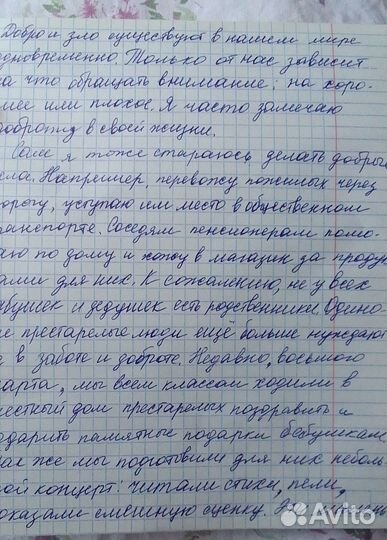 Добро и зло существуют в нашем мире
одновременно. Только от нас зависит
на что обращать внимание: на хоро-
шее или плохое. Я часто замечаю
доброту в своей жизни.
Сам я тоже стараюсь делать добрые
дела. Например, перевожу пожилых через
дорогу, уступаю им место в общественном
транспорте. Соседям пенсионерам помо-
гаю по дому и хожу в магазин за продук
тами для них. К сожалению, не у всех
бабушек и дедушек есть родственники. Одино-
кие престарелые люди ещё больше нуждают
ся в заботе и доброте. Недавно, восьмого
марта, мы всем классом ходили в
местный дом престарелых поздравить и
подарить памятные подарки бабушкам,
так же мы подготовили для них неболь
шой концерт: читали стихи, пели,
показали смешную сценку.
Avito